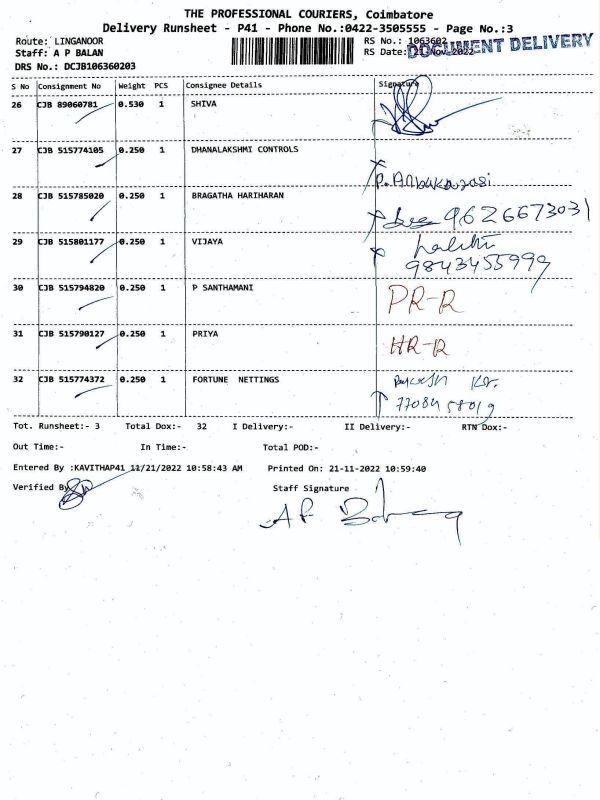 THE PROFESSIONAL COURIERS, Coimbatore
Delivery Runsheet - P41 - Phone No.:0422-3505555 - Page No.:3
Route: LINGANOOR RS No.: 1063602
Staff: A P BALAN RS Date: 21-Nov-2022 DOCUMENT DELIVERY
DRS No.: DCJB106360203
S No Consignment No Weight PCS Consignee Details Signature
26 CJB 89060781 0.530 1 SHIVA
27 CJB 515774105 0.250 1 DHANALAKSHMI CONTROLS
P. Anbukarasi
28 CJB 515785020 0.250 1 BRAGATHA HARIHARAN
9626673031
29 CJB 515801177 0.250 1 VIJAYA Lalithi
9843455999
30 CJB 515794820 0.250 1 P SANTHAMANI PR-R
31 CJB 515790127 0.250 1 PRIYA HR-R
32 CJB 515774372 0.250 1 FORTUNE NETTINGS
7708458019
Tot. Runsheet:- 3 Total Dox:- 32 I Delivery:- II Delivery:- RTN Dox:-
Out Time:- In Time:- Total POD:-
Entered By :KAVITHAP41 11/21/2022 10:58:43 AM Printed On: 21-11-2022 10:59:40
Verified By Staff Signature